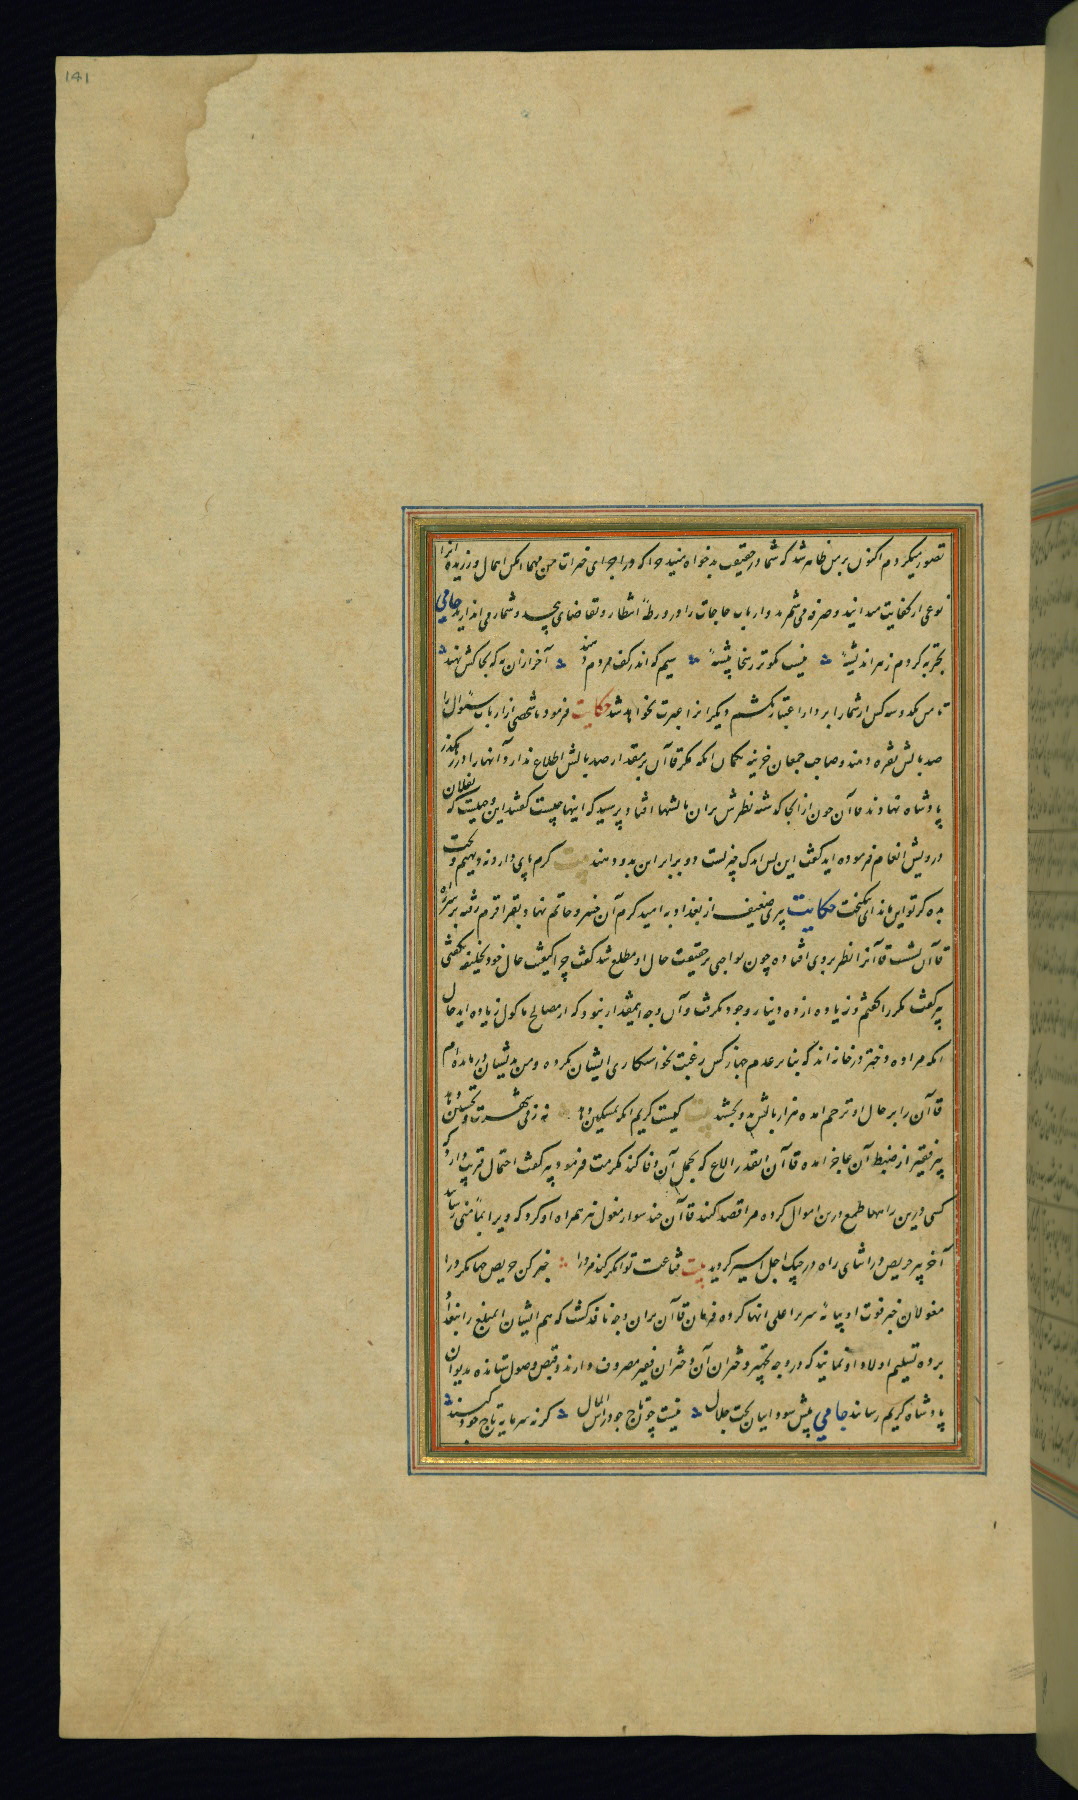 141
تصور میکردم اکنون بر من ظاهر شد که شما در حقیقت بدخواه منید چرا که در اجرای خیرات من مهما امکن اهمال ورزیده آنرا
نوعی از کفایت میدانید و صرفه می شمرید و ارباب حاجات را در ورطهٔ انتظار و تقاضای بیحد و شمار می اندازید جامی
تجربه کردم زهر اندیشهٔ نیست نکوتر ز سخا پیشهٔ سیم که اندر کف مردم نهند آخر ازان به که بخاکش نهند
تا من یکدو سه کس از شما را بر دار اعتبار نکشم دیگرانرا عبرت نخواهد شد حکایت فرمود تا شخصی از ارباب سئوال را
صد بالش نقره دهند و صاحب جمعان خزینه بگمان آنکه مگر قاآن بر مقدار صد بالش اطلاع ندارد آنها را در رهگذر
پادشاه نهادند قاآن چون از آنجا گذشته نظرش بران بالشها افتاد پرسید که اینها چیست گفتند این وجهیست که بفلان
درویش انعام فرموده اید گفت این بس اندک چیزیست دو برابر این بدو دهند بیت کرم پای دارد نه دیهیم و تخت
بده کز تو این ماند ای نیکبخت حکایت پیری ضعیف از بغداد به امید کرم آن خسرو حاتم نهاد بقراقرم رفته بر سر راه
قاآن نشست قاآنرا نظر بر وی افتاده چون بواجبی بر حقیقت حال او مطلع شد گفت چرا کیفیت حال خود بخلیفه نگفتی
پیر گفت مکرر گفتم و زیاده از ده دینار وجود نگرفت و آن وجه آنمقدار نبود که از مصالح ماکول زیاده آید حال
آنکه مرا ده دختر در خانه اند که بنا بر عدم جهاز کس رغبت بخواستکاری ایشان نکرده و من بدیشان درمانده ام
قاآن را بر حال او ترحم آمده هزار بالش بدو بخشید بیت کیست کریم آنکه بمسکین دهد نه ز پی شهرت و تحسین دهد
پیر فقیر از ضبط آن عاجز آمده قاآن آنقدر الاغ که بحمل آن وفا کند مکرمت فرمود پیر گفت احتمال قریب دارد که
کسی درین راهها طمع درین اموال کرده مرا قصد کند قاآن چند سوار مغول نیز همراه او کرد که ویرا بمأمنی رسانند
آخر پیر حریص در اثنای راه در چنگ اجل اسیر گردید بیت قناعت توانگر کند مرد را خبر کن حریص جهانگرد را
مغولان خبر فوت او بپایهٔ سریر اعلی انها کرده فرمان قاآن بران وجه نافذ گشت که هم ایشان آنمبلغ را ببغداد
برده تسلیم اولاد او نمایند که در وجه تجهیز دختران آن فقیر مصروف دارند و قبض وصول ستانده بدیوان
پادشاه کریم رسانند جامی پیش سوداییان تخت جلال نیست چون تاج جود راس المال گر نه سرمایه تاج جود کنند